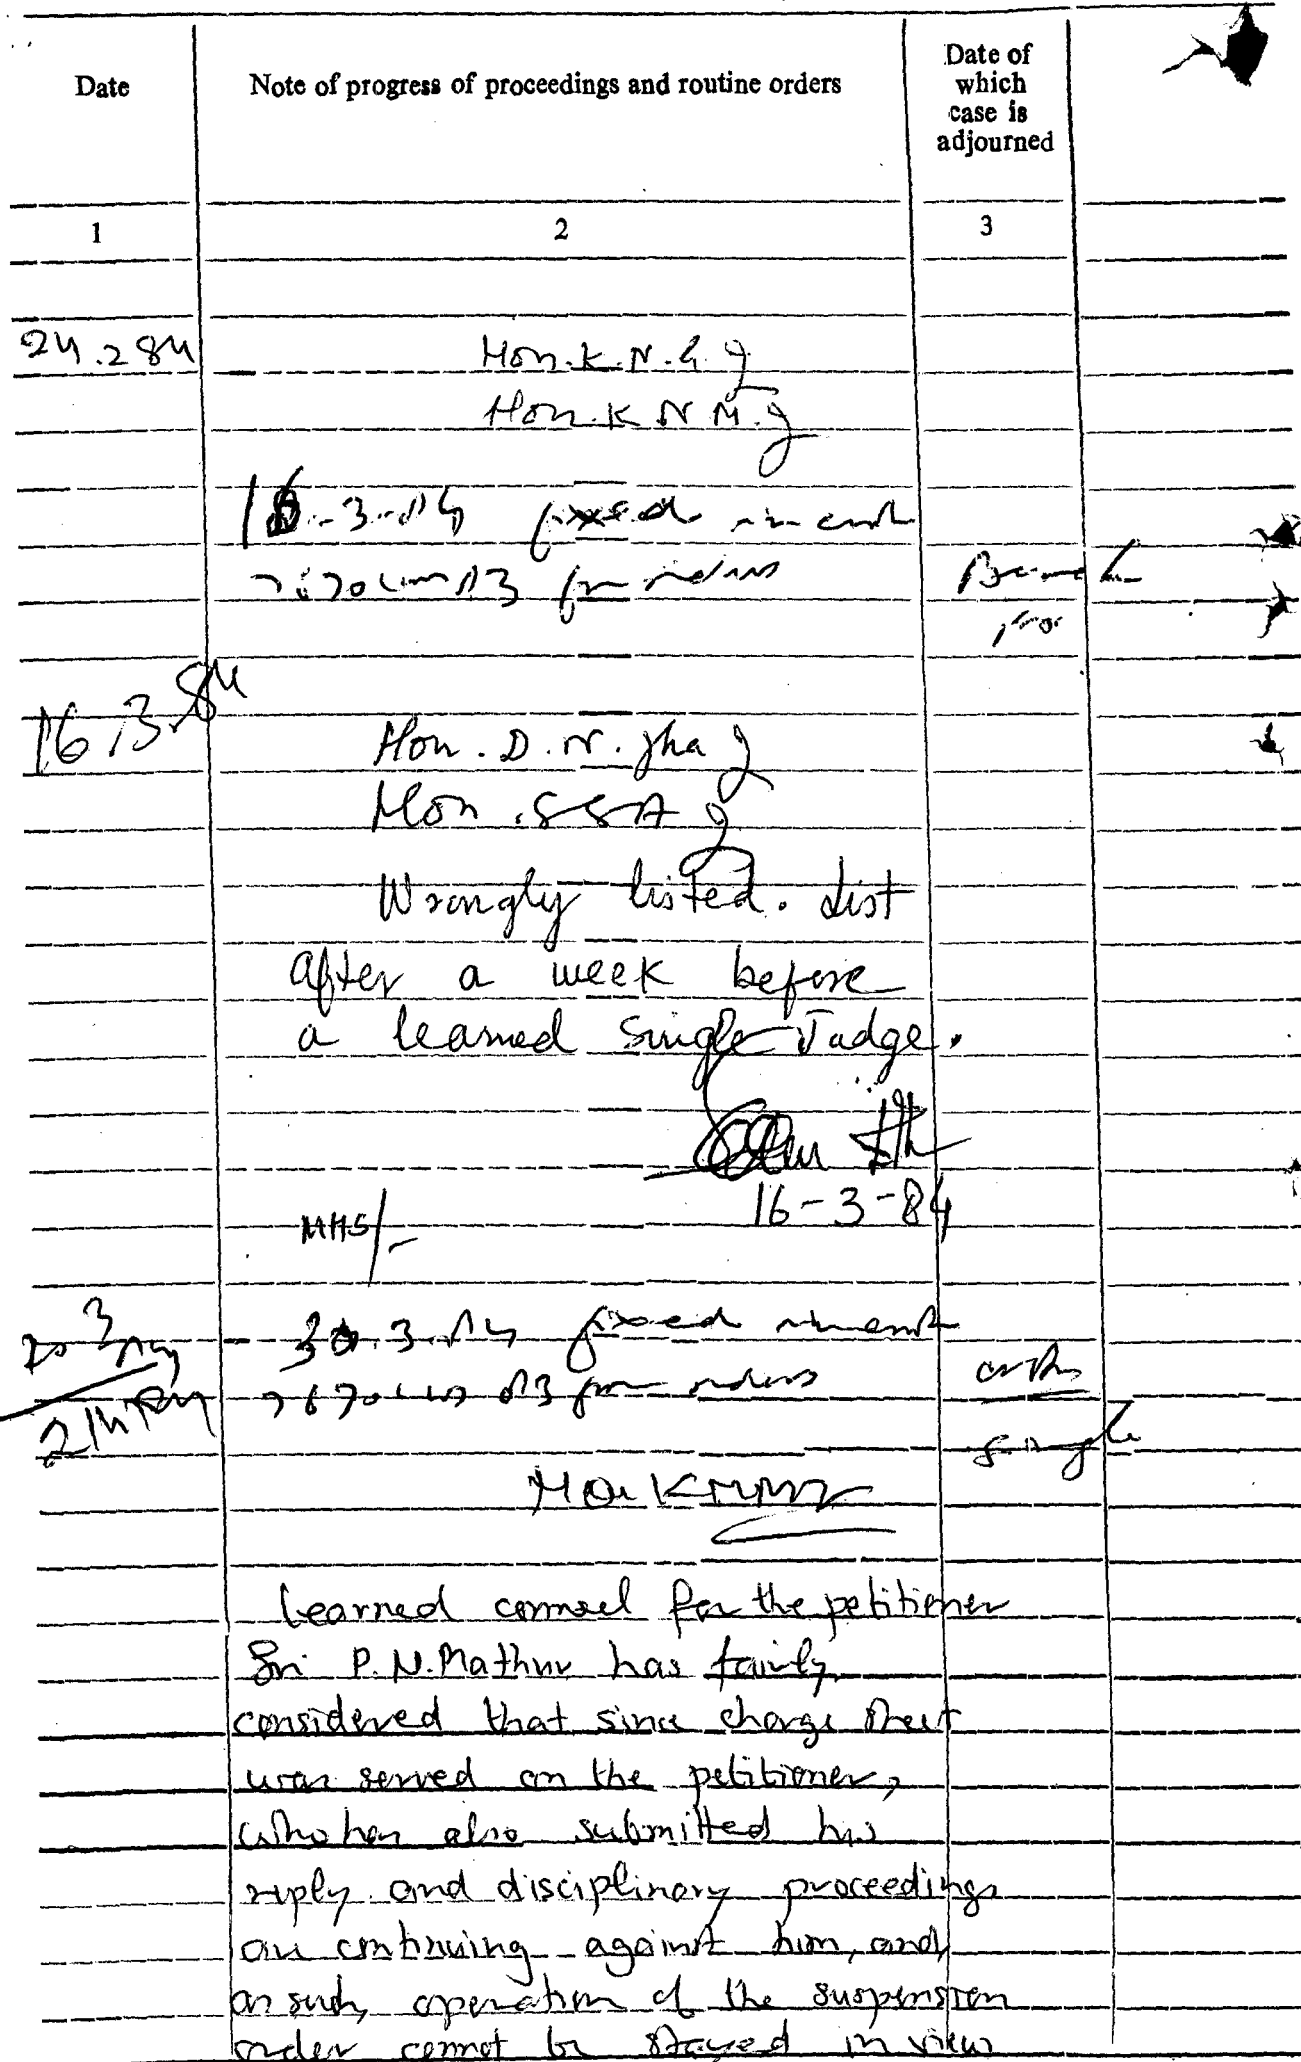 Date
Note of progress of proceedings and routine orders
Date of
which
case is
adjourned
1
2
3
24.2 84
Hon. K. N. G. J
Hon. K N M. J
16-3-84 fixed
for orders
Bench
16.3.84
Hon. D. N. Jha J
Hon. SSA J
Wrongly listed. List
after a week before
a learned Single Judge.
16-3-84
MHS/-
30.3.84 fixed
for orders
Single
Learned counsel for the petitioner
Sri P. N. Mathur has fairly
considered that since charge sheet
was served on the petitioner,
who has also submitted his
reply and disciplinary proceedings
are continuing against him, and
as such, operation of the suspension
order cannot be stayed in view